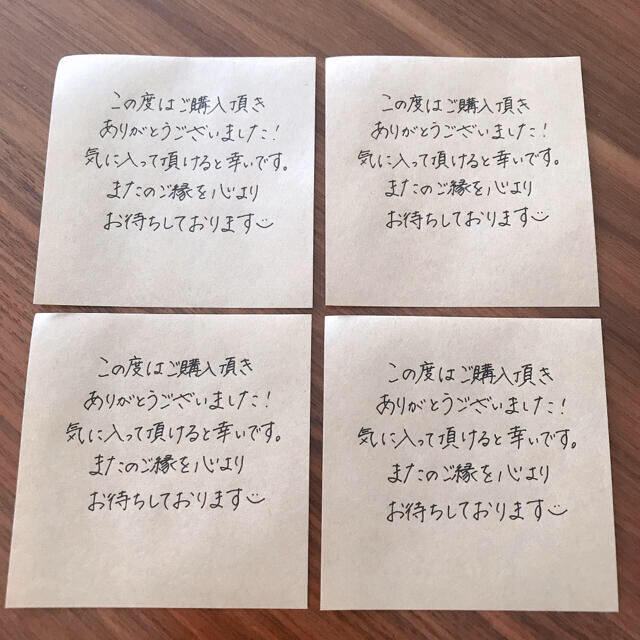 この度はご購入頂き
ありがとうございました!
気に入って頂けると幸いです。
またのご縁を心より
お待ちしております
この度はご購入頂き
ありがとうございました!
気に入って頂けると幸いです。
またのご縁を心より
お待ちしております
この度はご購入頂き
ありがとうございました!
気に入って頂けると幸いです。
またのご縁を心より
お待ちしております
この度はご購入頂き
ありがとうございました!
気に入って頂けると幸いです。
またのご縁を心より
お待ちしております